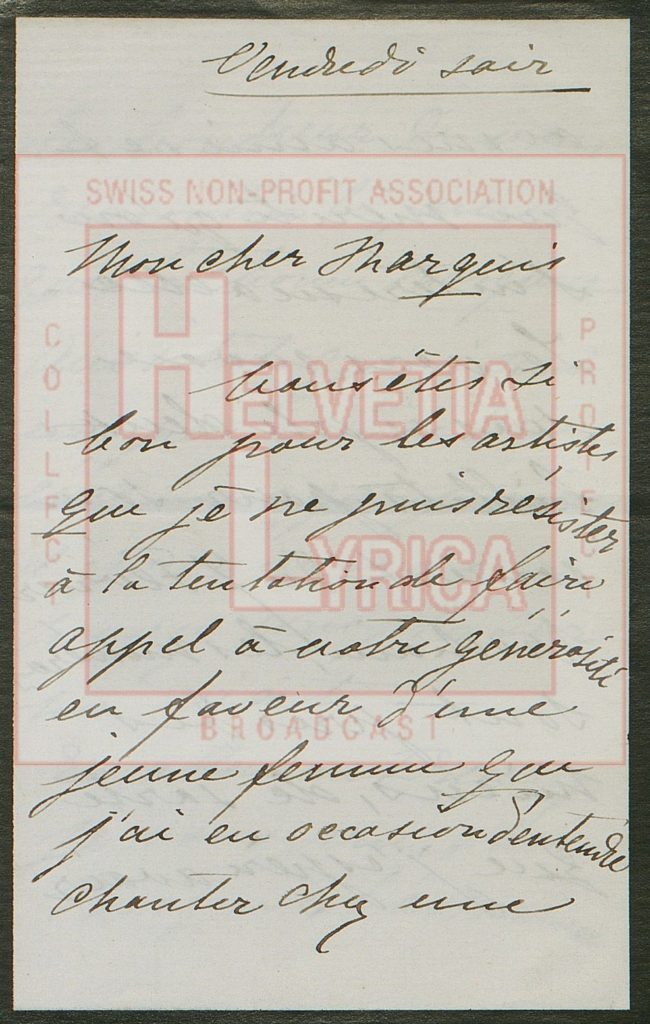 Vendredi soir
SWISS NON-PROFIT ASSOCIATION
Mon cher Marquis
COLLECT
PROTECT
HELVETIA
LYRICA
BROADCAST
vous êtes si
bon pour les artistes
que je ne puis résister
à la tentation de faire
appel à votre générosité
en faveur d'une
jeune femme que
j'ai eu occasion d'entendre
chanter chez une